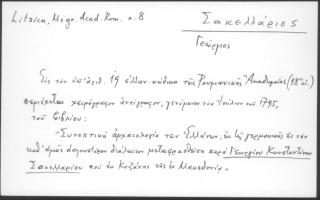 Litzica, Mogr. Acad. Rom. σ. 8
Σακελλάριος
Γεώργιος
Εις τον υπ' αριθ. 19 ελλην. κώδικα της Ρουμανικής Ακαδημείας (18ου αι.)
περιέχεται χειρόγραφον αντίγραφον, γενόμενον τον Ιούλιον του 1795,
του βιβλίου:
"Συνοπτική αρχαιολογία των Ελλήνων, εκ της γερμανικής εις την
καθ' ημάς απλουστέραν διάλεκτον μεταφρασθείσα παρά Γεωργίου Κωνσταντίνου
Σακελλαρίου του εκ Κοζάνης της εν Μακεδονία.